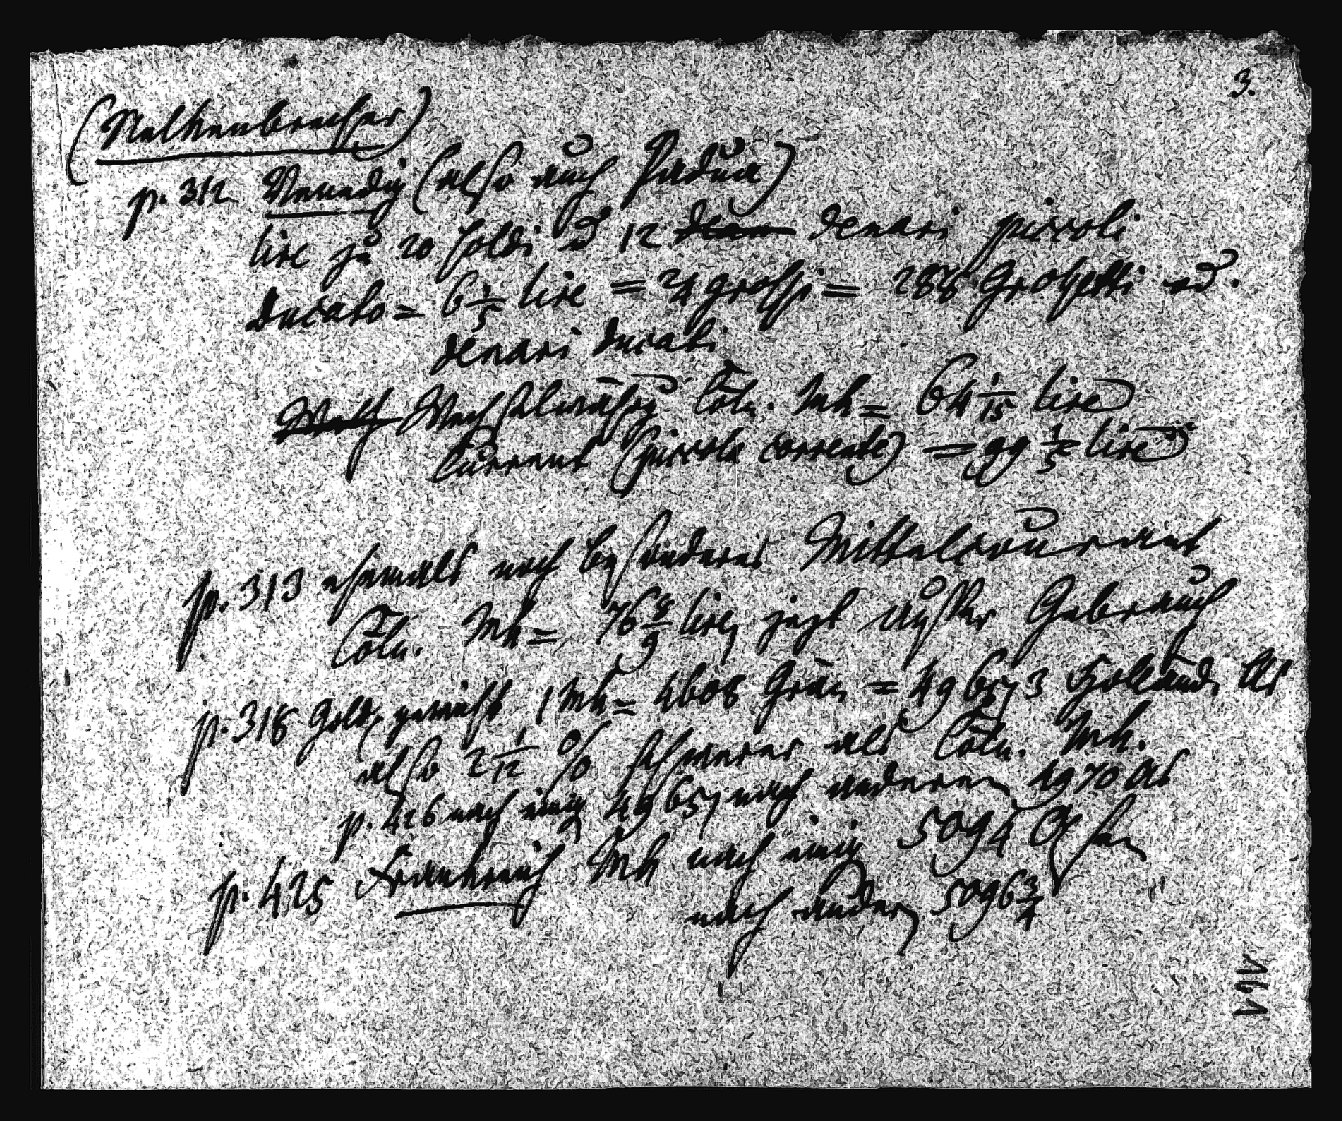 3.
(Nelkenbrecher)
p. 312 Venedig (also auch Padua)
lire zu 20 soldi à 12 denari piccoli
Ducato = 6 1/5 lire = 24 grossi = 288 Grossetti od.
denari ducati
Nach Cöln. Mk = 64 1/15 lire
Current (piccola corrente) = 99 1/5 lire
p. 313 ehemals nach besonderer Mittelcourant
Cöln. Mk = 76 8/9 lire, jezt außer Gebrauch
p. 316 Goldgewicht 1 Mk = 4608 Grän = 4965,73 Holländ. As
also 2 1/12 % schwerer als Cöln. Mk.
p. 426 nach einig 4965, nach anderen 4970 As
p. 425 Frankreich Mk nach einig 5094 Assen
nach andern 5096 3/4